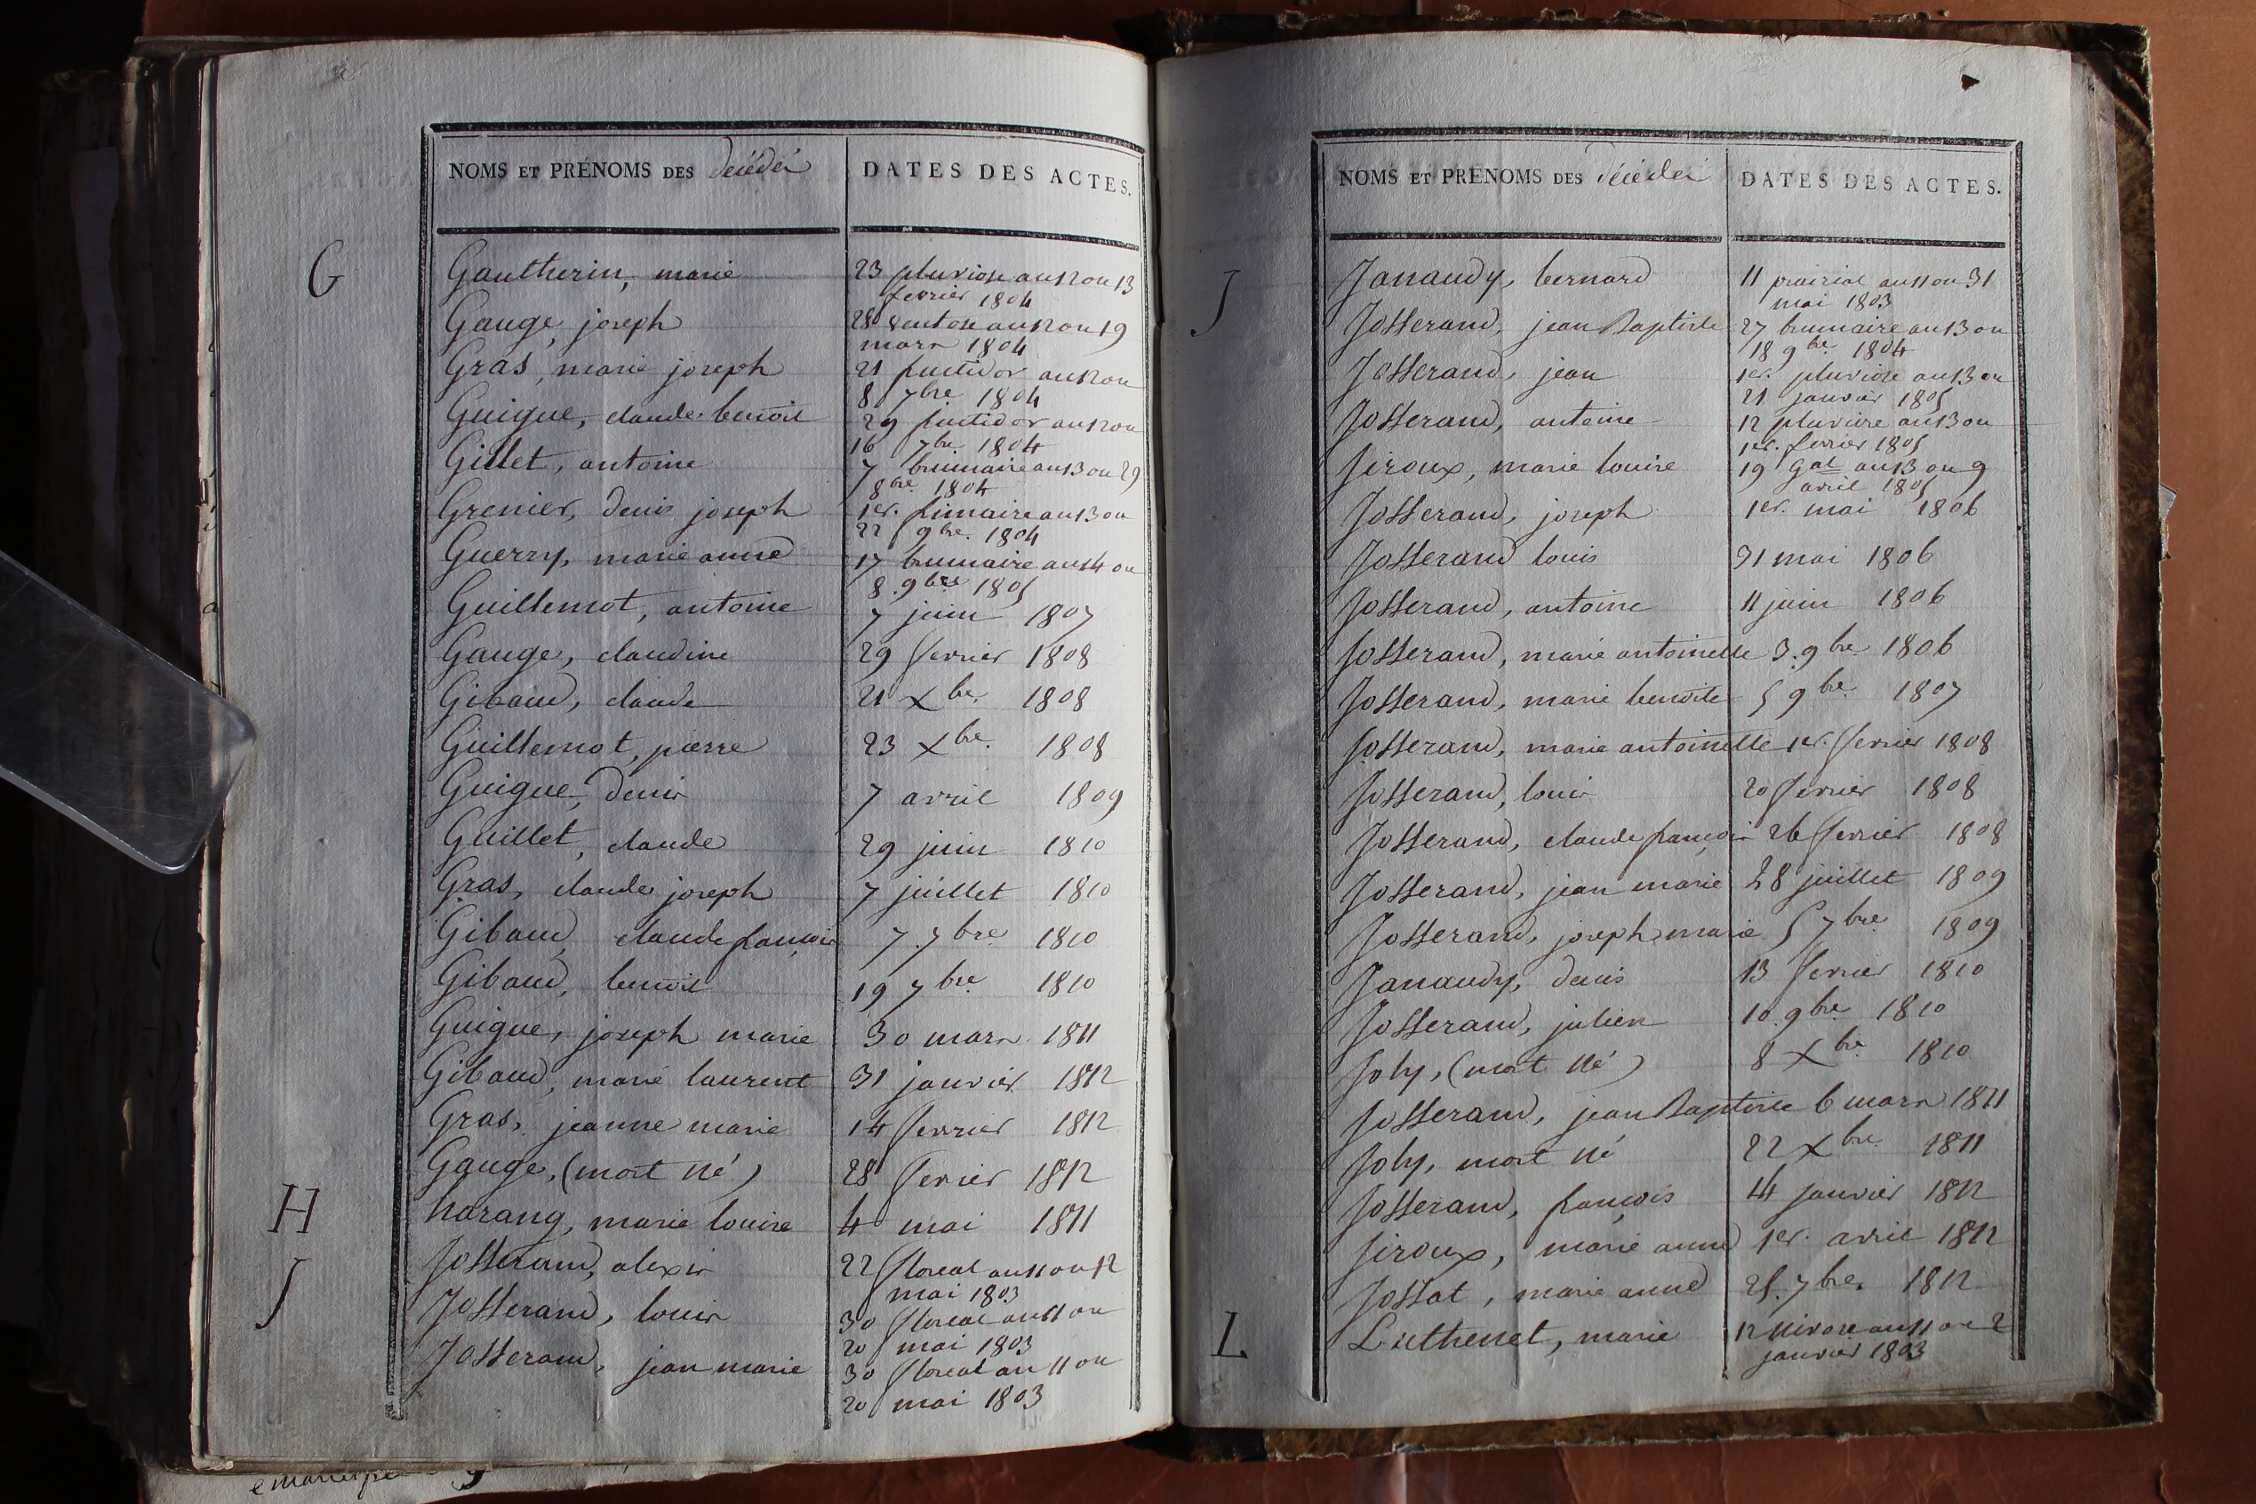 NOMS ET PRÉNOMS DES Décédés
DATES DES ACTES.
G
Gautherin, marie 23 pluviose an 12 ou 13
fevrier 1804
Gauge, joseph 28 ventose an 12 ou 19
mars 1804
Gras, marie joseph 21 fructidor an 12 ou
8 7bre 1804
Guigue, claude benoit 29 fructidor an 12 ou
16 7bre 1804
Gillet, antoine 7 brumaire an 13 ou 29
8bre 1804
Grenier, denis joseph 1er. frimaire an 13 ou
22 9bre. 1804
Guerry, marie anne 17 brumaire an 14 ou
8. 9bre 1805
Guillemot, antoine 7 juin 1807
Gauge, claudine 29 fevrier 1808
Gibaud, claude 21 Xbre. 1808
Guillemot, pierre 23 Xbre. 1808
Guigue, denis 7 avril 1809
Guillet, claude 29 juin 1810
Gras, claude joseph 7 juillet 1810
Gibaud, claude françois 7. 7bre 1810
Gibaud, benoit 19 7bre 1810
Guigue, joseph marie 30 mars 1811
Gibaud, marie laurent 31 janvier 1812
Gras, jeanne marie 14 fevrier 1812
Gauge, (mort né) 28 fevrier 1812
H
harang, marie louise 4 mai 1811
J
Josserand, alexis 22 floreal an 11 ou 12
mai 1803
Josserand, louis 30 floreal an 11 ou
20 mai 1803
Josserand, jean marie 30 floreal an 11 ou
20 mai 1803
NOMS ET PRÉNOMS DES Décédés
DATES DES ACTES.
J
Janaudy, bernard 11 prairial an 11 ou 31
mai 1803
Josserand, jean Baptiste 27 brumaire an 13 ou
18 9bre 1804
Josserand, jean 1er. pluviose an 13 ou
21 janvier 1805
Josserand, antoine 12 pluviose an 13 ou
1er. fevrier 1805
Jiroux, marie louise 19 Gal an 13 ou 9
avril 1805
Josserand, joseph 1er. mai 1806
Josserand louis 31 mai 1806
Josserand, antoine 11 juin 1806
Josserand, marie antoinette 3. 9bre 1806
Josserand, marie benoite 5 9bre 1807
Josserand, marie antoinette 1er. fevrier 1808
Josserand, louis 20 fevrier 1808
Josserand, claude françois 26 fevrier 1808
Josserand, jean marie 28 juillet 1809
Josserand, joseph marie 5 7bre 1809
Janaudy, denis 13 fevrier 1810
Josserand, julien 10. 9bre 1810
Joly, (mort né) 8 Xbre 1810
Josserand, jean Baptiste 6 mars 1811
Joly, mort né 22 Xbre. 1811
Josserand, françois 14 janvier 1812
Jiroux, marie anne 1er. avril 1812
Jossat, marie anne 25. 7bre. 1812
L
Luthenet, marie 12 nivose an 11 ou 2
janvier 1803